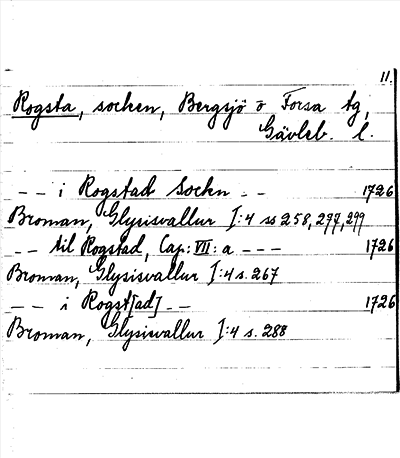 11.
Rogsta, socken, Bergsjö o Forsa tg,
Gävleb. l.
-- i Rogstad Sockn -- 1726
Broman, Glysisvallur I:4 ss 258, 297, 299
-- til Rogstad, Cap: VII: a --- 1726
Broman, Glysisvallur I:4 s. 267
-- i Rogst[ad] -- 1726
Broman, Glysisvallur I:4 s. 288